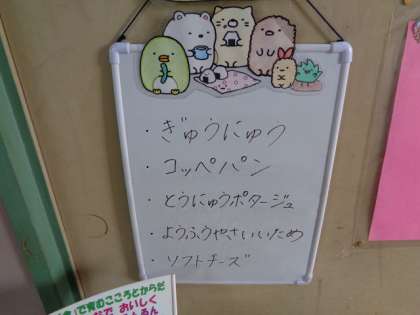 ・ぎゅうにゅう
・コッペパン
・とうにゅうポタージュ
・ようふうやさいいため
・ソフトチーズ
で育むこころとからだ
で、おいしく